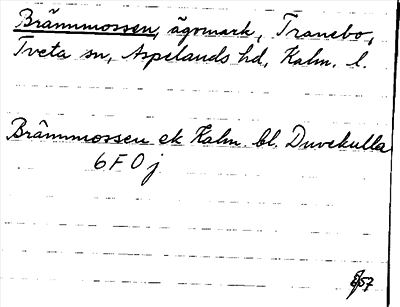 Brämmossen, ägomark, Tranebo,
Tveta sn, Aspelands hd, Kalm. l.
Brämmossen ek Kalm. bl. Duvekulla
6 F 0 j